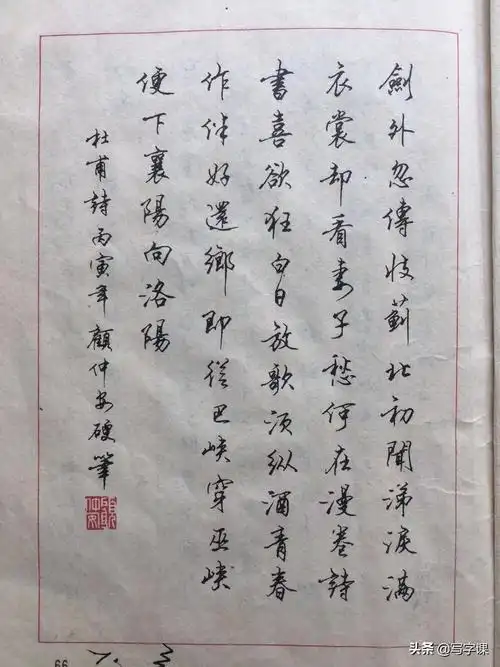 劍外忽傳收薊北初聞涕淚滿
衣裳却看妻子愁何在漫卷詩
書喜欲狂白日放歌須縱酒青春
作伴好還鄉即從巴峽穿巫峽
便下襄陽向洛陽
杜甫詩丙寅年顧仲安硬筆
66
头条 @写字课